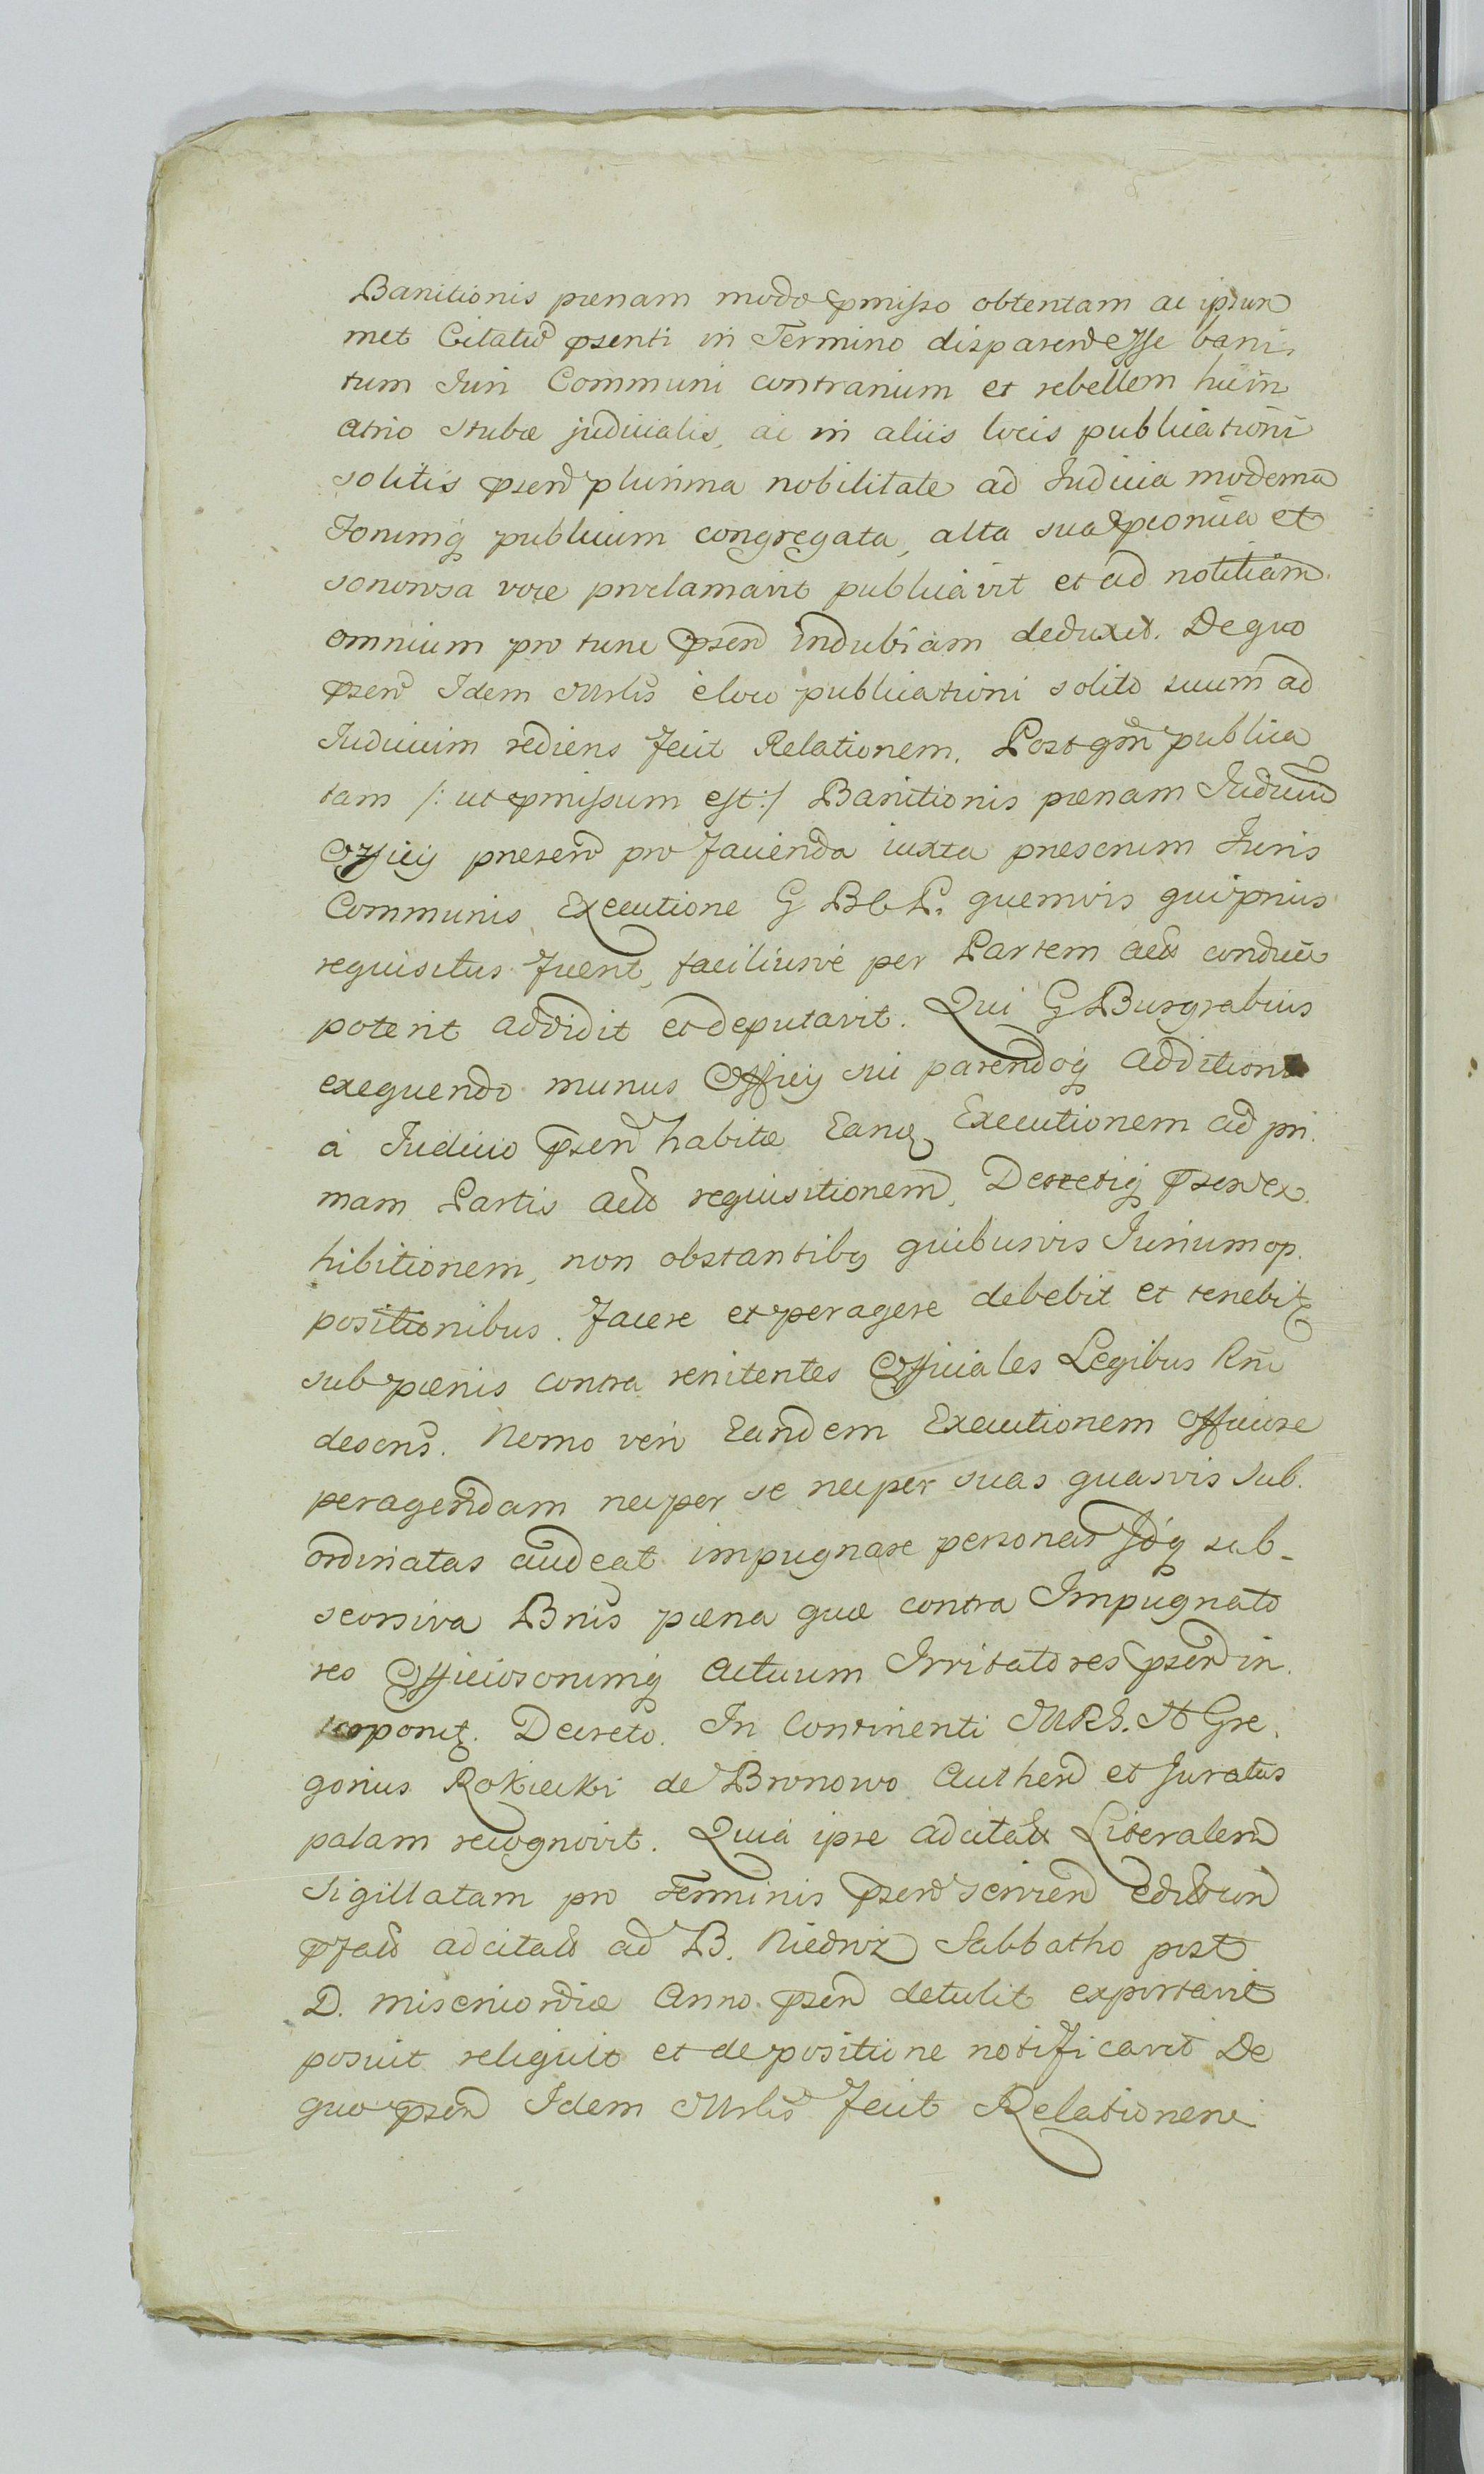 Banitionis pœnam modo pmisso obtentam ac ipsum
met Citatũ psenti in Termino disparend esse bani,
tum Juri Communi contrarium et rebellem huĩn
atrio stubæ judicialis, ac in aliis locis publicationi
solitis psend plurima nobilitate ad Judicia moderna
Forumq publicum congregata, alta sua pconica et
sonorosa voce proclamavit publicavit et ad notitiam
omnium pro tunc psen indubiam deduxit. De quo
psen Idem Mrlis e loco publicationi solito suum ad
Judicium rediens fecit Relationem. Post qm publica
tam /: ut pmissum est :/ Banitionis pœnam Judicium
Officij presend pro facienda iuxta prescrium Juris
Communis Executione G B C P. quemvis qui prius
requisitus fuerit, faciliusve per Partem acto conduci
poterit addidit et deputavit. Qui G Burgrabius
exequendo munus Officij sui parendoq additioni
à Judicio psen habitæ Eanq Executionem ad pri.
mam Partis acto requisitionem, Decretiq psen ex.
hibitionem, non obstantibq quibusvis Jurium op.
positionibus. facere et peragere debebit et tenebit
sub pœnis contra renitentes Officiales Legibus Rni
descris. Nemo vero Eandem Executionem officiose
peragendam nec per se nec per suas quasvis sub.
ordinatas audeat impugnare personas Idq sub-
seorsiva Bnis pœna quæ contra Impugnato
res Officiosorumq actuum Irritatores psen in.
ponit. Decreto. In Continenti MRG. N Gre.
gorius Rokicki de Bronowo Authen et Juratus
palam recognovit. Quia ipse adcitato Literalem
Sigillatam pro Terminis psen servien
pfato adcitato ad B. Niedroz Sabbatho post
D. misericordiæ Anno psen detulit exportavit
posuit reliquit et de positione notificavit De
quo psen Idem Mrlis fecit Relationem